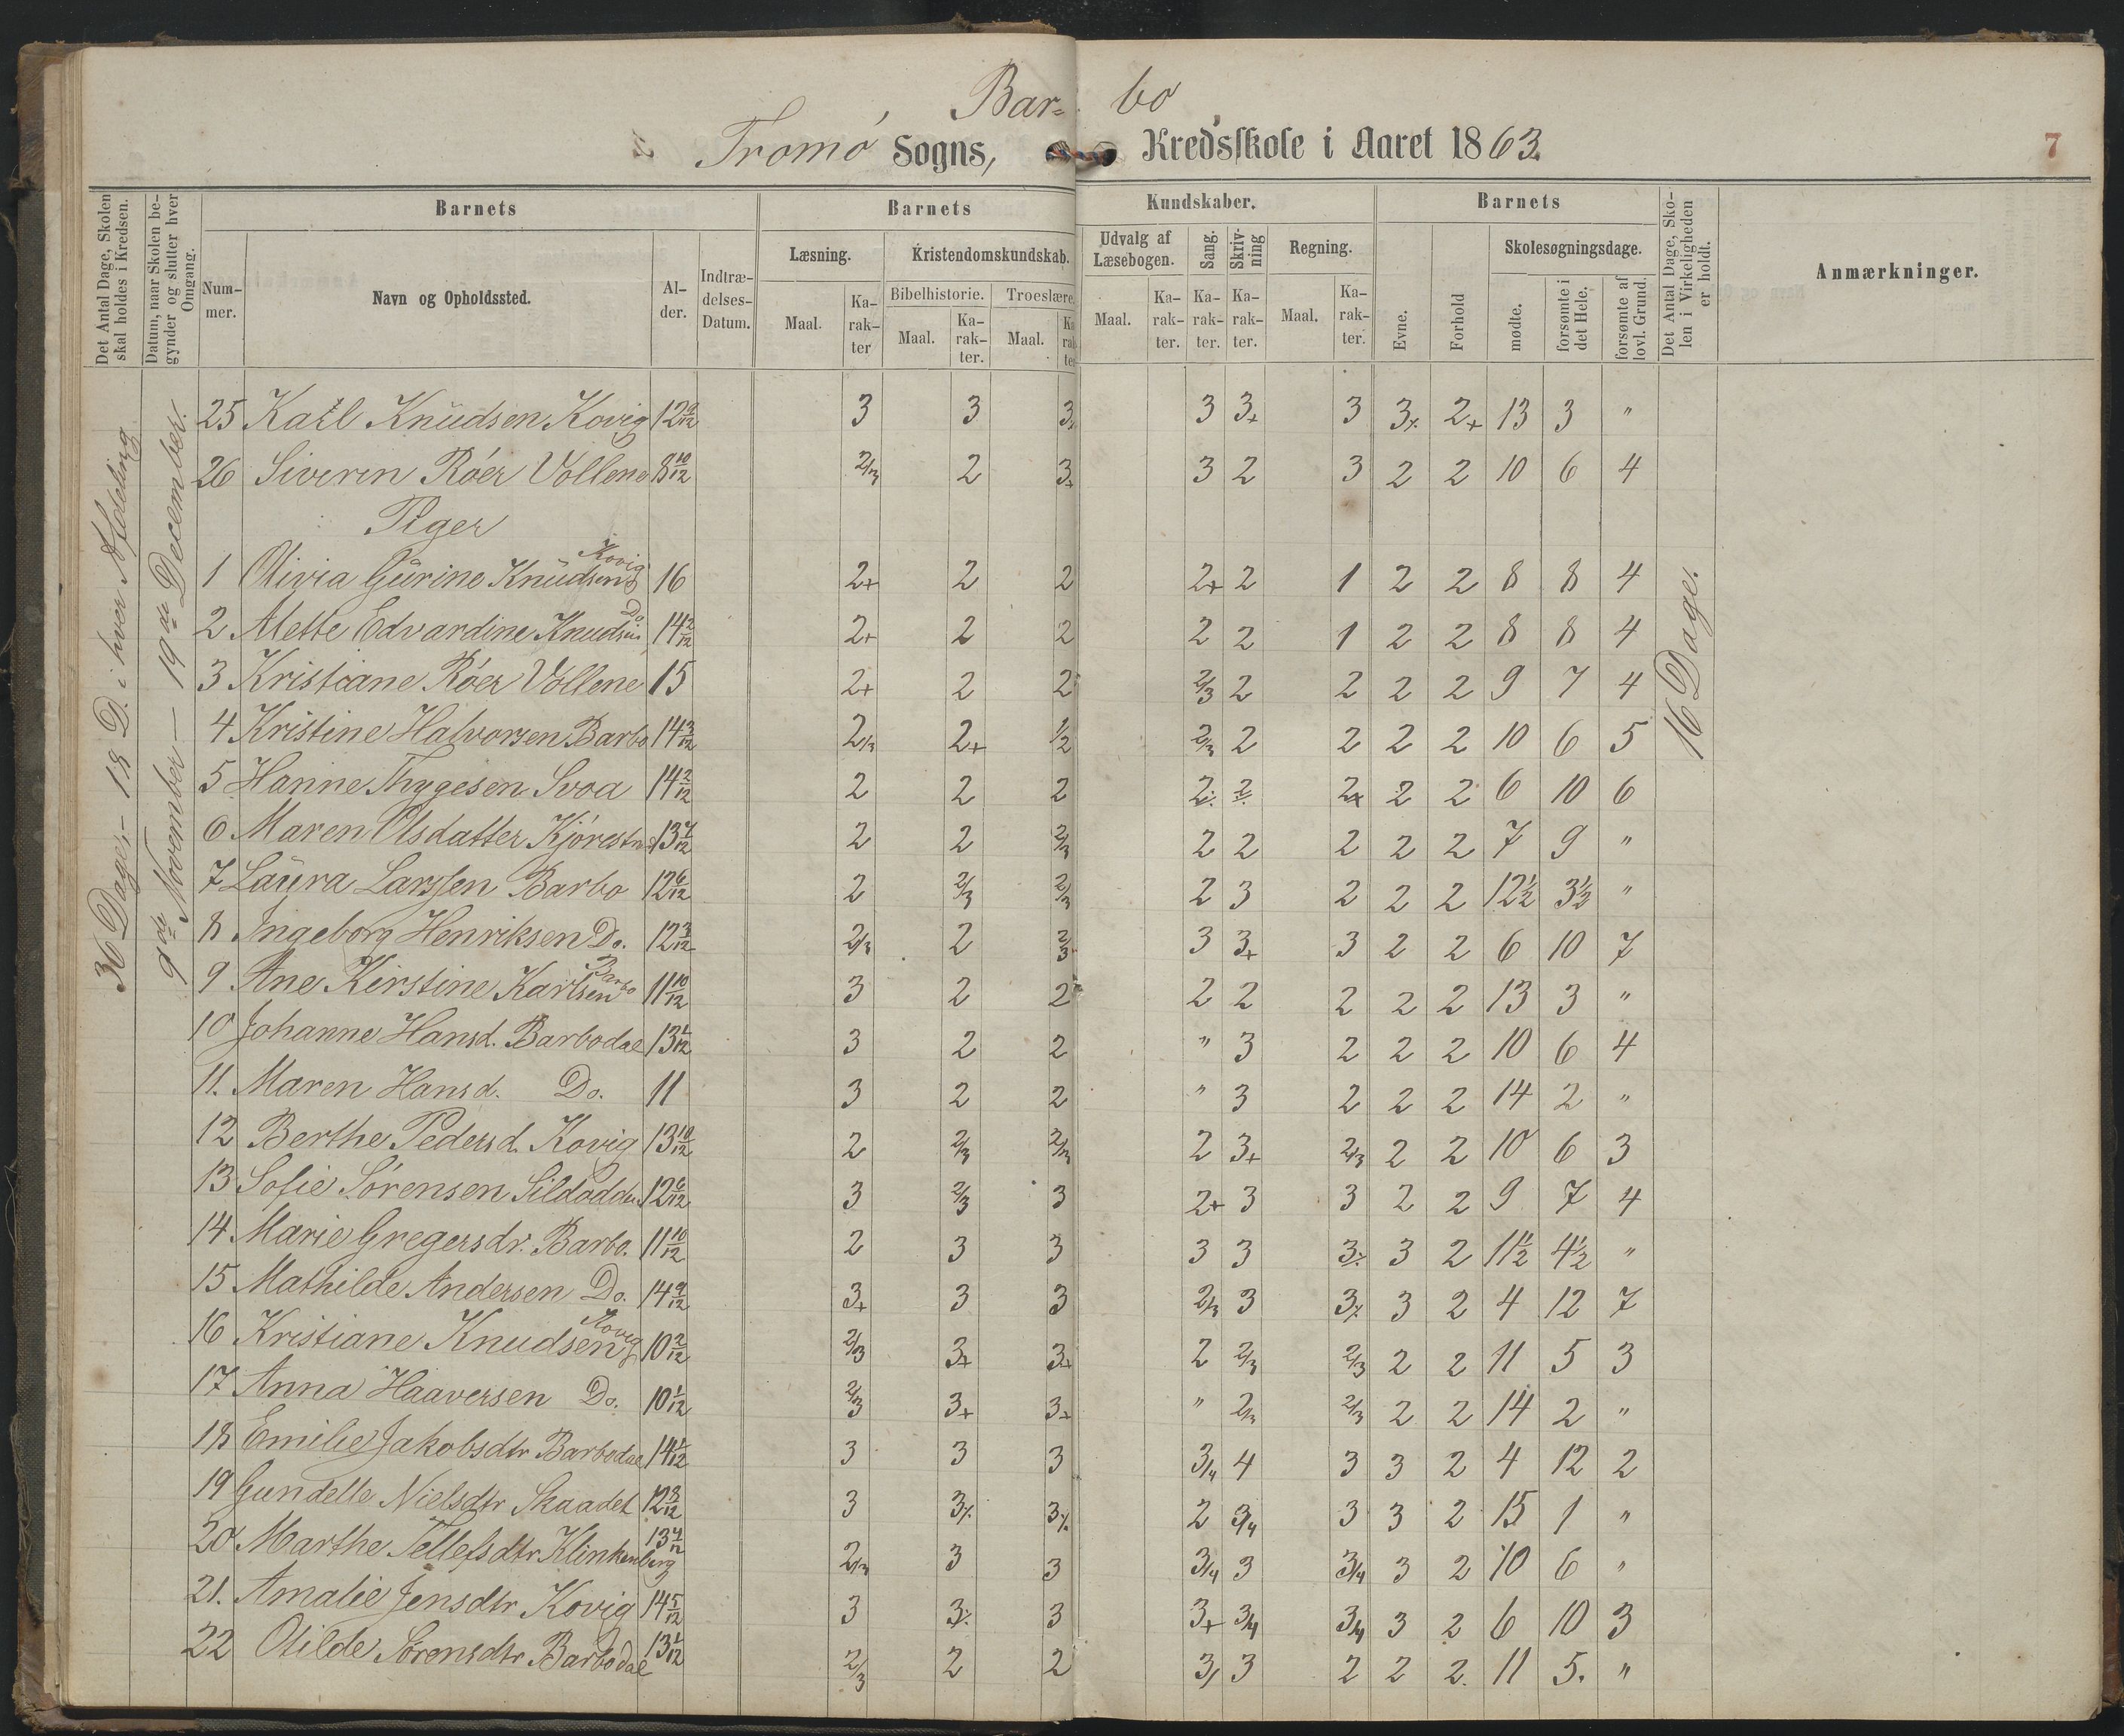 Bar= bo
Tromø Sogns, Kredsskole i Aaret 1863.
7
Det Antal Dage, Skolen skal holdes i Kredsen.
Datum, naar Skolen begynder og slutter hver Omgang.
Barnets
Barnets
Kundskaber.
Barnets
Det Antal Dage, Skolen i Virkeligheden er holdt.
Anmærkninger.
Nummer.
Navn og Opholdssted.
Alder.
Indtrædelses-Datum.
Læsning.
Kristendomskundskab.
Udvalg af Læsebogen.
Sang.
Skrivning
Regning.
Evne.
Forhold
Skolesøgningsdage.
Maal.
Karakter
Bibelhistorie.
Troeslære.
Maal.
Karakter.
Maal.
Karakter
Maal.
Karakter.
Karakter.
Karakter.
Maal.
Karakter.
mødte.
forsømte i det Hele.
forsømte af lovl. Grund.
36 Dage, – 18 D. i hver Afdeling
9de November – 19de December.
16 Dage.
25 Karl Knudsen Kovig 12 9/12 3 3 3 3 3+ 3 3⁒ 2+ 13 3 "
26 Siveren Röer Vollene 8 10/12 2/3 2 3+ 3 2 3 2 2 10 6 4
Piger
1 Olivia Gurine Knudsen Kovig 16 2+ 2 2 2+ 2 1 2 2 8 8 4
2 Mette Edvardine Knudsen Do 14 2/12 2+ 2 2 2 2 1 2 2 8 8 4
3 Kristiane Röer Vollene 15 2+ 2 2 2/3 2 2 2 2 9 7 4
4 Kristine Halvorsen Barbo 14 3/12 2/3 2+ 1/2 2/3 2 2 2 2 10 6 5
5 Hanne Thygesen Svoa 14 2/12 2 2 2 2⁒ 2⁒ 2+ 2 2 6 10 6
6 Maren Olsdatter 13 7/12 2 2 2/3 2 2 2 2 2 7 9 "
7 Laura Larssen Barbo 12 6/12 2 2/3 2/3 2 3 2 2 2 12½ 3½ "
8 Ingeborg Henriksen Do. 12 3/12 2/3 2 2/3 3 3+ 3 2 2 6 10 7
9 Ane Kirstine Karlsen Barbo 11 10/12 3 2 2 2 2 2 2 2 13 3 "
10 Johanne Hansd. Barbodal 13 1/12 3 2 2 " 3 2 2 2 10 6 4
11. Maren Hansd. Do. 11 3 2 2 " 3 2 2 2 14 2 "
12 Berthe Pedersd. Kovig 13 10/12 2 2/3 2/3 2 3+ 2/3 2 2 10 6 3
13 Sofie Sørensen Sildodden 12 6/12 3 2/3 3 2+ 3 3 2 2 9 7 4
14 Marie Gregersdr. Barbo. 11 10/12 2 3 3 3 3 3⁒ 3 2 11½ 4½ "
15 Mathilde Andersen Do. 14 9/12 3+ 3 3 2/3 3 3⁒ 3 2 4 12 7
16 Kristiane Knudsen Kovig 10 2/12 2/3 3+ 3+ 2 2/3 2/3 2 2 11 5 3
17 Anna Haaversen Do. 10 1/12 2/3 3+ 3+ " 2/3 2/3 2 2 14 2 "
18 Emilie Jakobsdtr Barbodal 14 1/12 3 3 3 3/4 4 3 3 2 4 12 2
19 Gundelle Nielsdtr Skaadet 12 8/12 3 3⁒ 3⁒ 2 3/4 3 3 2 15 1 "
20 Marthe Tellefsdtr Klinkenberg 13 4/12 2/3 3 3 3/4 3 3/4 3 2 10 6 "
21. Amalie Jensdtr Kovig 14 5/12 3 3⁒ 3 3+ 3/4 3/4 3 2 6 10 3
22 Otilde Sørensdtr Barbodal 13 1/12 2/3 2 2 3/ 3 2 2 2. 11 5. "